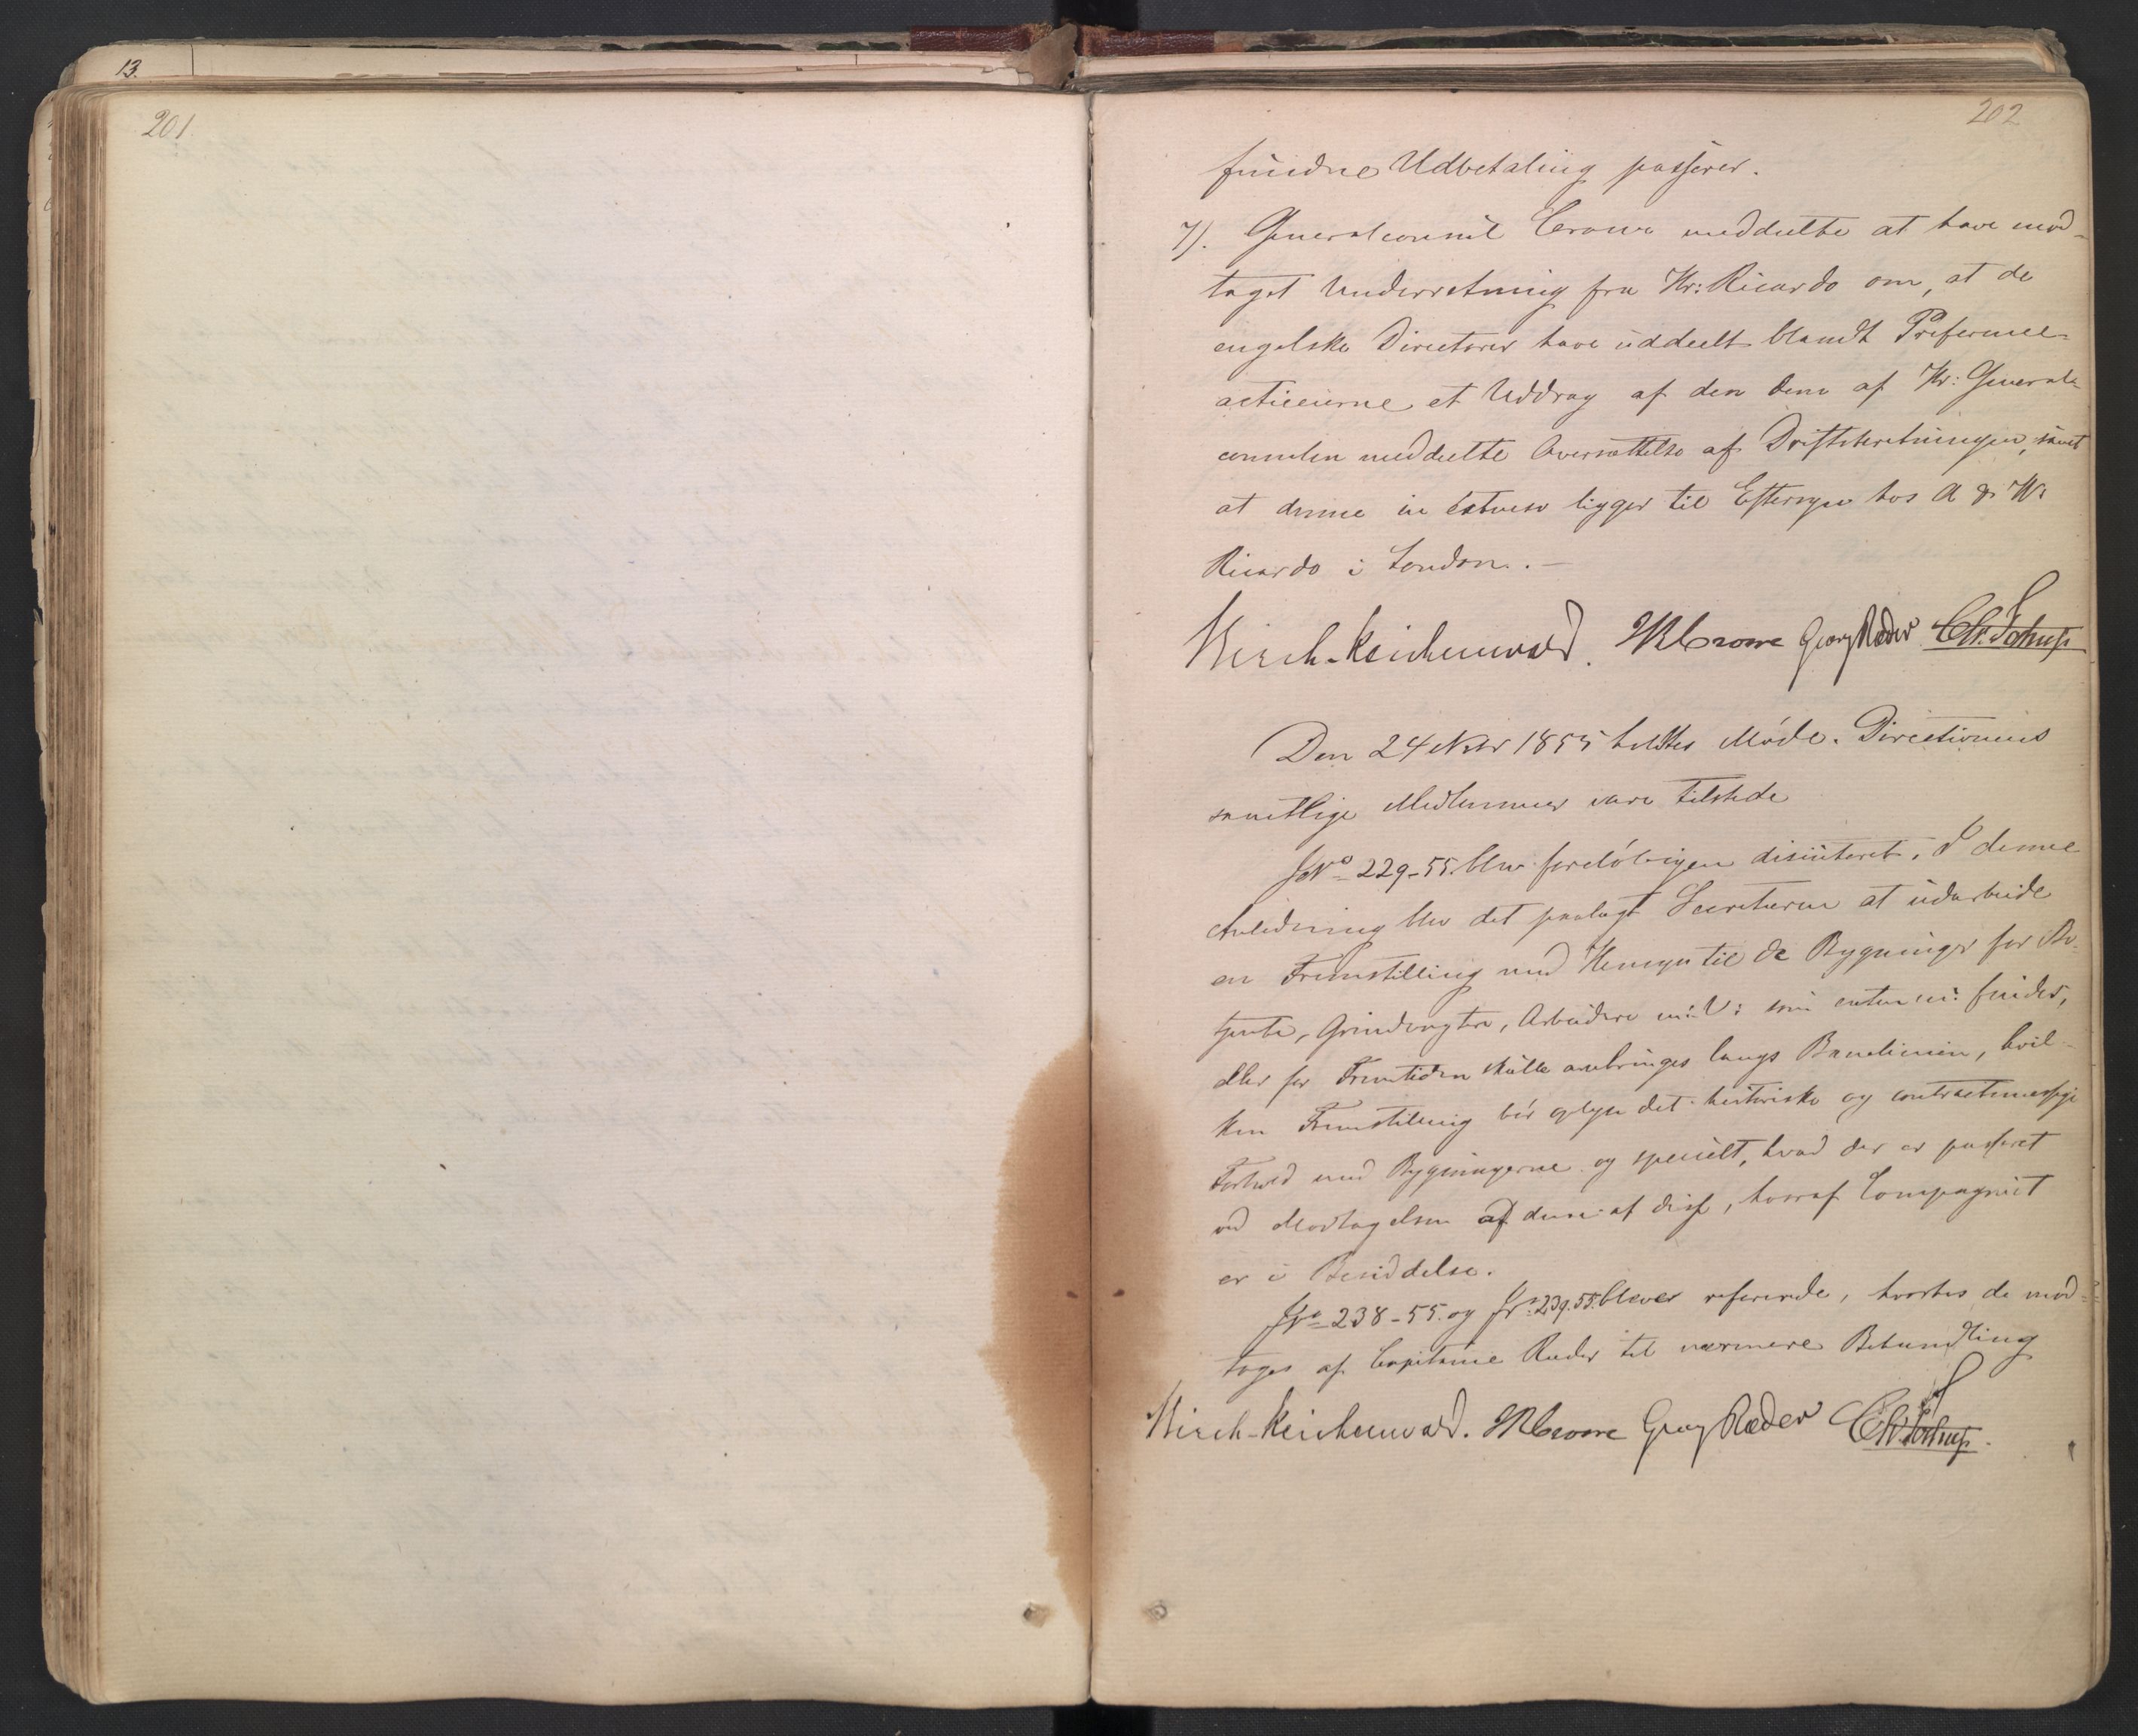 13.
201.
202
fundne Udbetaling passerer.
7). Generalconsul Crowe meddeelte at have mod-
taget Underretning fra Hr: Ricardo om, at de
engelske Directører have uddeelt blandt Præference-
actieeierne et Uddrag af den dem af Hr: General-
consulen meddeelte Oversættelse af Driftsberetningen, samt
at denne in extenso ligger til Eftersyn hos A & W.
Ricardo i London. –
Birch-Reichenwald. JR Crowe Georg Ræder Chr. Schup
Den 24 Novbr 1855 holdtes Møde. Directionens
samtlige Medlemmer vare tilstede
J No 229-55. blev foreløbigen discuteret. I denne
Anledning blev det paalagt Secretæren at udarbeide
en Fremstilling med Hensyn til de Bygninger for Be-
tjente, Grindvogtere, Arbeidere m: V: som enten nu findes,
eller for Fremtiden skulle anbringes langs Banelinien, hvil-
ken Fremstilling bør oplyse det historiske og contractmæssige
Forhold med Bygningerne og specielt, hvad der er passeret
ved Modtagelsen af dem af disse, hvoraf Compagniet
er i Besiddelse.
J No 238-55. og J No 239.55. bleve refererede, hvorhos de mod-
toges af Capitaine Ræder til nærmere Behandling
Birch-Reichenwald. JR Crowe Georg Ræder Chr. Schup.